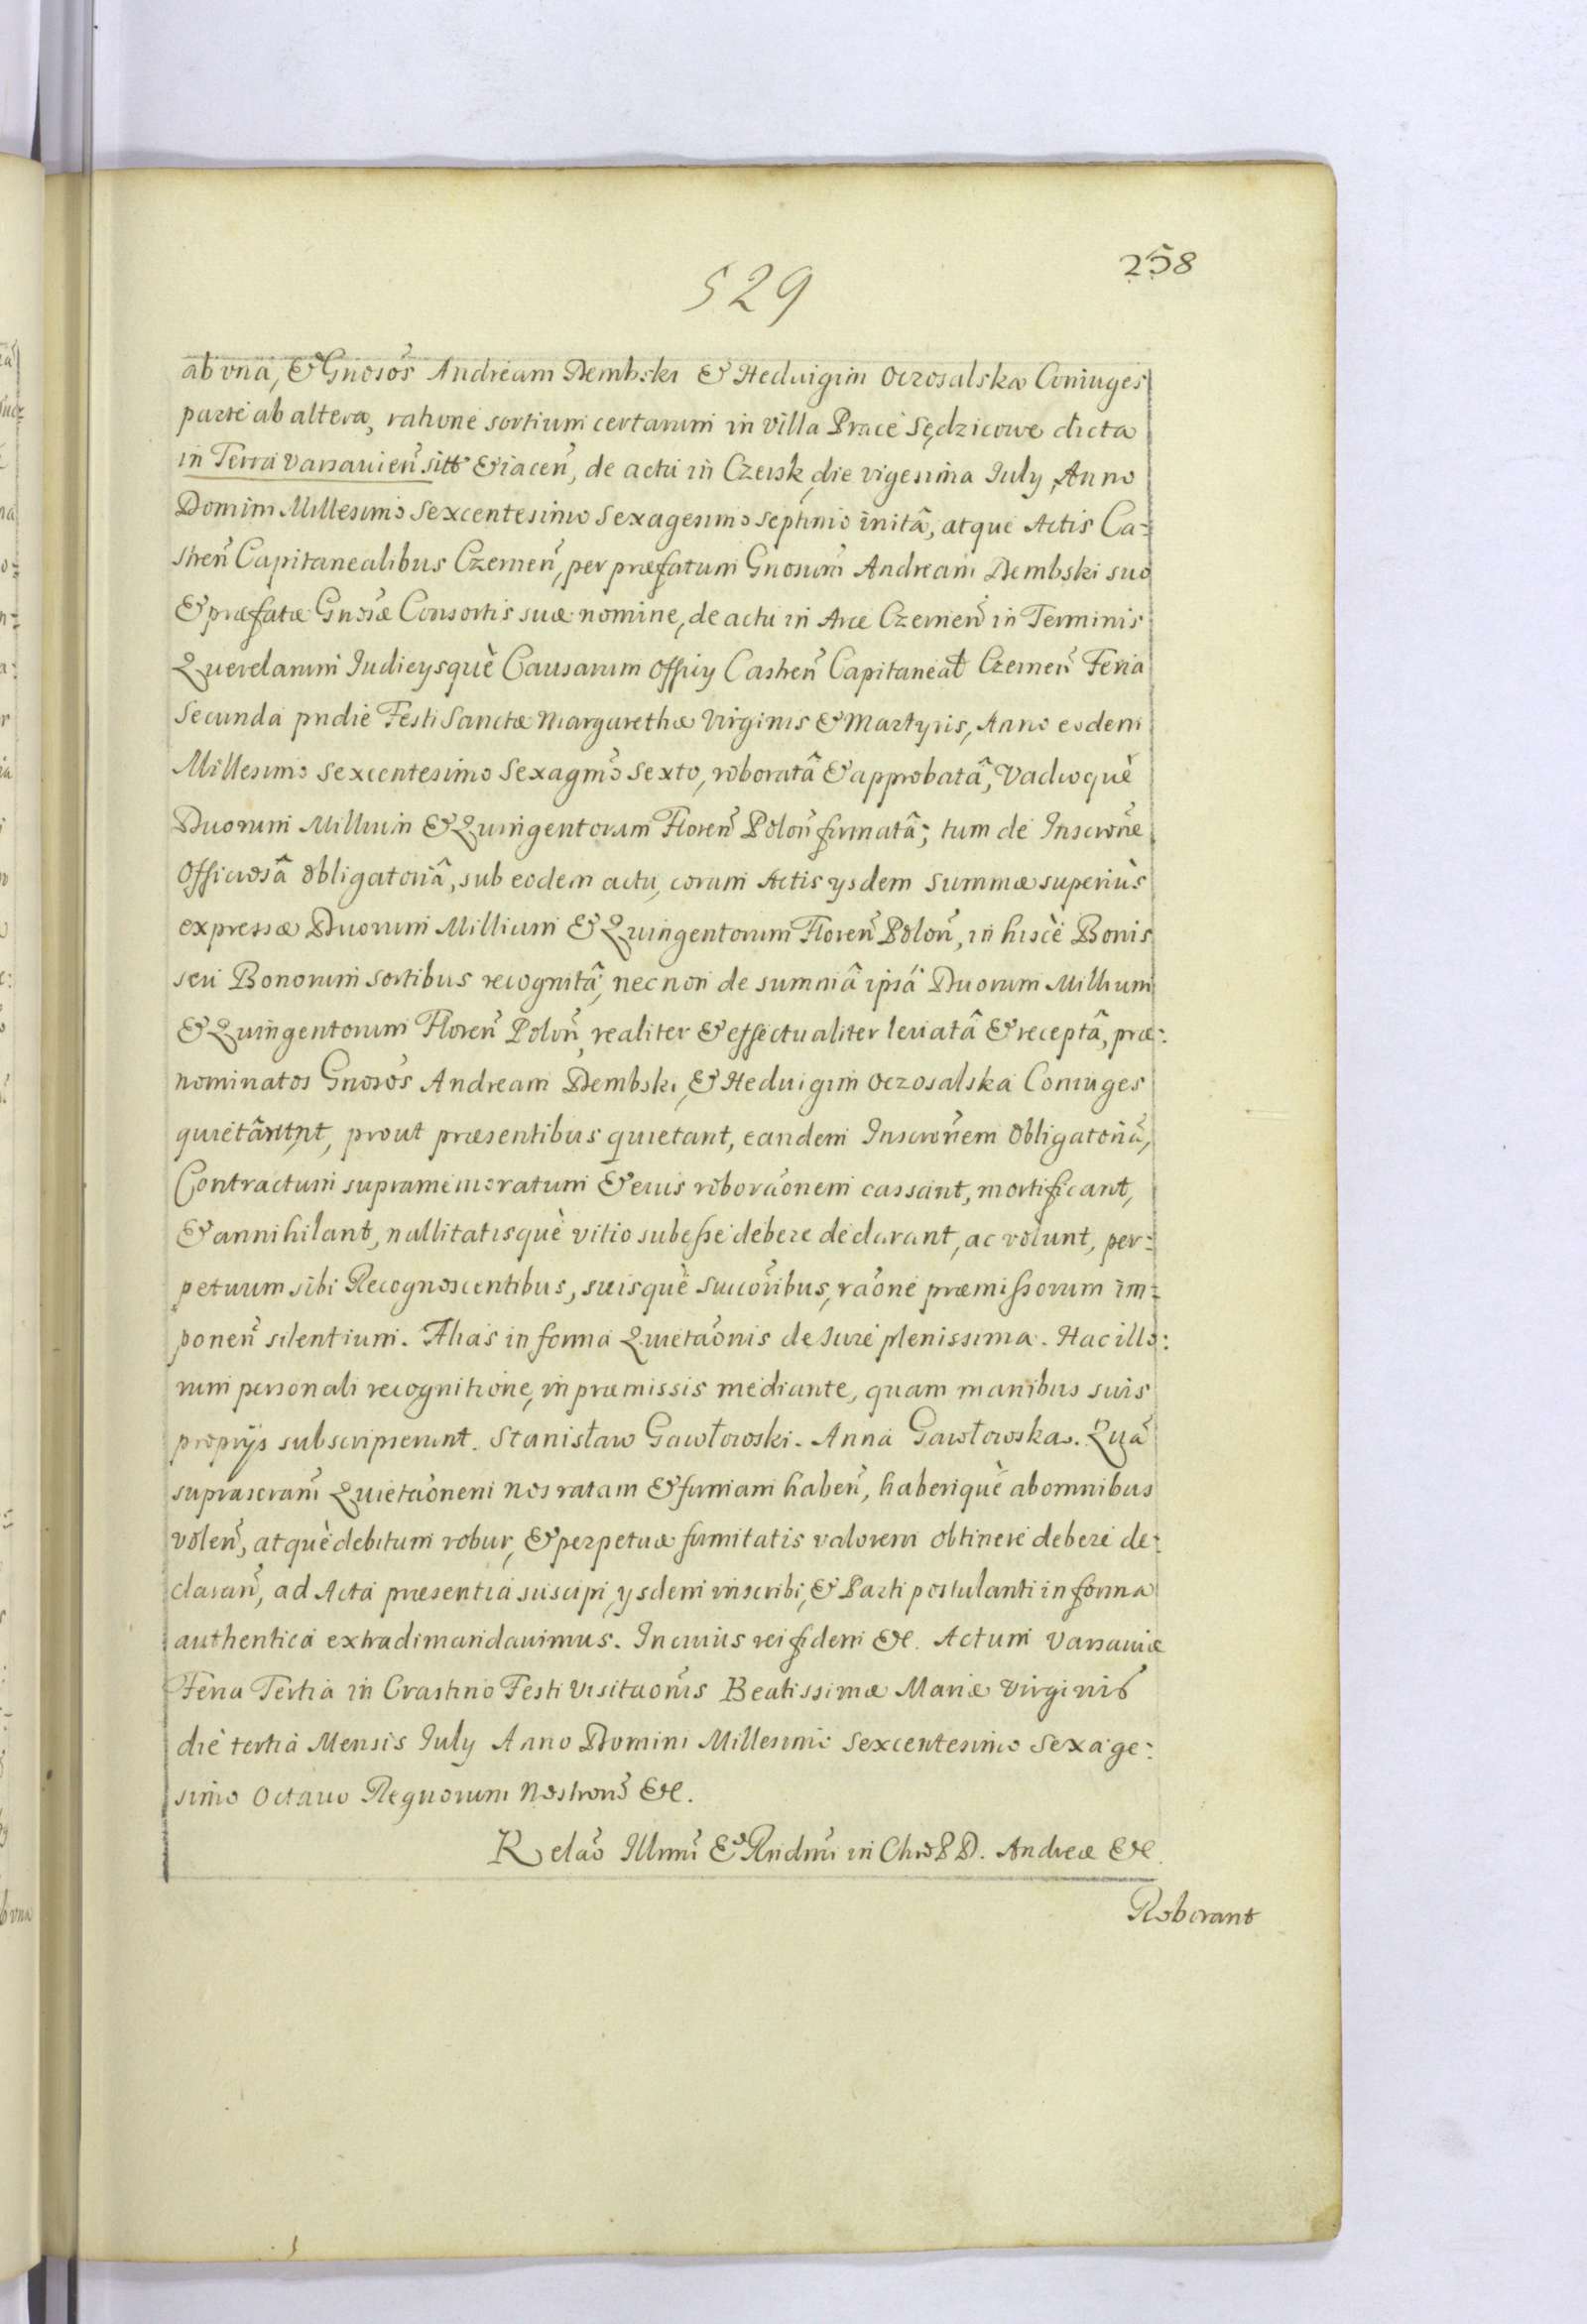 258
529
ab vna, & Gnosos Andream Dembski & Heduigim Oczosalska Coniuges
parte ab altera, ratione sortium certarum in Villa Prace Sędzicowe dicta
in Terra Varsauien̄ sitt & iacen̄, de actu in Czersk die vigesima July Anno
Domini Millesimo Sexcentesimo Sexagesimo septimo initâ, atque Actis Ca=
stren̄ Capitanealibus Czernen̄, per præfatum Gnosum Andream Dembski suo
& præfatæ Gnosæ Consortis suæ nomine, de actu in Arce Czernen̄ in Terminis
Querelarum Iudicysquè Causarum Officy Castren̄ Capitaneał Czernen̄ Feria
Secunda pridie Festi Sanctæ Margarethæ Virginis & Martyris, Anno eodem
Millesimo Sexcentesimo Sexagmō Sexto, roboratâ & approbatâ, Vadioquè
Duorum Millium & Quingentorum Floren̄ Polon̄ firmatâ; tum de Inscrōne
Officiosâ obligatoriâ, sub eodem actu, coram Actis ysdem summæ superiùs
expressæ Duorum Millium & Quingentorum Floren̄ Polon̄, in hiscè Bonis
seu Bonorum sortibus recognitâ, nec non de summâ ipsâ Duorum Millium
& Quingentorum Floren̄ Polon̄, realiter & effectualiter leuatâ & receptâ, præ:
nominatos Gnosos Andream Dembski, & Heduigim Oczosalska Coniuges
quietârunt, prout præsentibus quietant, eandem Inscrōnem Obligatoriā,
Contractum supramemoratum & eius roborāonem cassant, mortificant,
& annihilant, nullitatisquè vitio subesse debere declarant, ac volunt, per=
petuum sibi Recognoscentibus, suisquè succōribus, rāone præmissorum im=
ponen̄ silentium. Alias in forma Quietāonis de Iure plenissima. Hac illo:
rum personali recognitione, in præmissis mediante, quam manibus suis
proprijs subscripserunt. Stanisław Gawłowski. Anna Gawłowska. Quā
suprascram̄ Quietāonem nos ratam & firmam haben̄, haberiquè ab omnibus
volen̄, atquè debitum robur, & perpetuæ firmitatis valorem obtinere debere de:
claran̄, ad Acta præsentia suscipi, ysdem inscribi, & Parti postulanti in forma
authentica extradi mandauimus. In cuius rei fidem &c. Actum Varsauiæ
Feria Tertia in Crastino Festi Visitaonis Beatissimæ Mariæ Virginis
die tertia Mensis July Anno Domini Millesimo Sexcentesimo Sexage:
simo Octauo Regnorum Nostrorū &c.
Relāo Illmi & Rndmi in Chrō P D. Andreæ &c.
Roborant